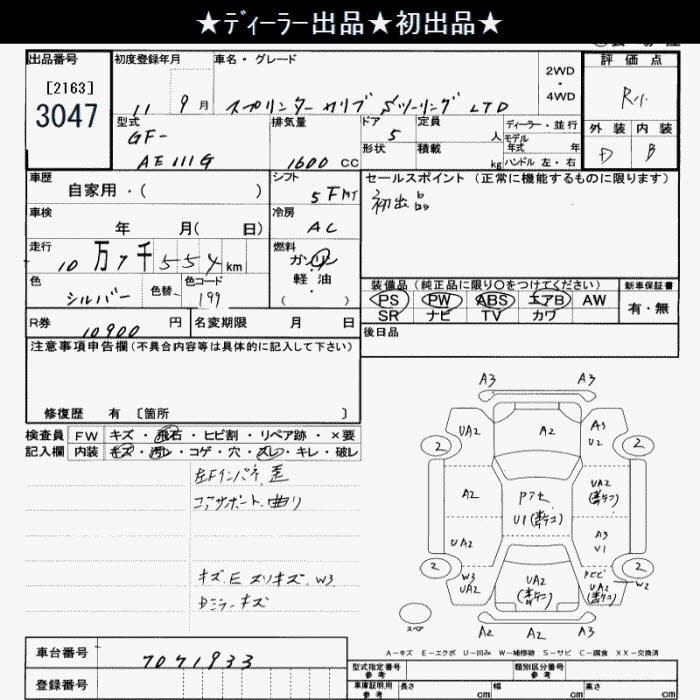 ★ディーラー出品★初出品★
出品番号
[2163]
3047
初度登録年月
11 9月
車名・グレード
スプリンター カリブ Sツーリング LTD
2WD
・
4WD
評価点
R
外装 内装
D B
型式
GF-
AE111G
排気量
1600 cc
ドア
5
定員
人
形状
積載
kg
ディーラー・並行
モデル
年式 年
ハンドル 左・右
車歴
自家用・( )
シフト
5FMT
セールスポイント(正常に機能するものに限ります)
初出品
車検
年 月( 日)
冷房
AC
走行
10万7千554km
燃料
ガソリン
・
軽油
( )
色
シルバー
色替
色コード
199
装備品(純正品に限り○をつけてください)
PS PW ABS エアB AW
SR ナビ TV カワ
新車保証書
有・無
R券
10900 円
名変期限 月 日
後日品
注意事項申告欄(不具合内容等は具体的に記入して下さい)
修復歴 有 〔箇所 〕
検査員
記入欄
FW キズ・飛石・ヒビ割・リペア跡・×要
内装 キズ・汚レ・コゲ・穴・スレ・キレ・破レ
左Fインパネ歪
コアサポート曲り
キズ.E スリキズ.W3
Dミラーキズ
A3 A3
UA2 A2 A3
U2
2 2
A2 UA2
U1
UA2 A3
U1
2 2
W3
UA2
UA2
UA2
W2
スペア
A2 A2 A3
A-キズ E-エクボ U-凹み W-補修跡 S-サビ C-腐食 XX-交換済
車台番号
7071933
登録番号
型式指定番号
参考
類別区分番号
参考
車庫証明用
参考
長さ cm
幅 cm
高さ cm